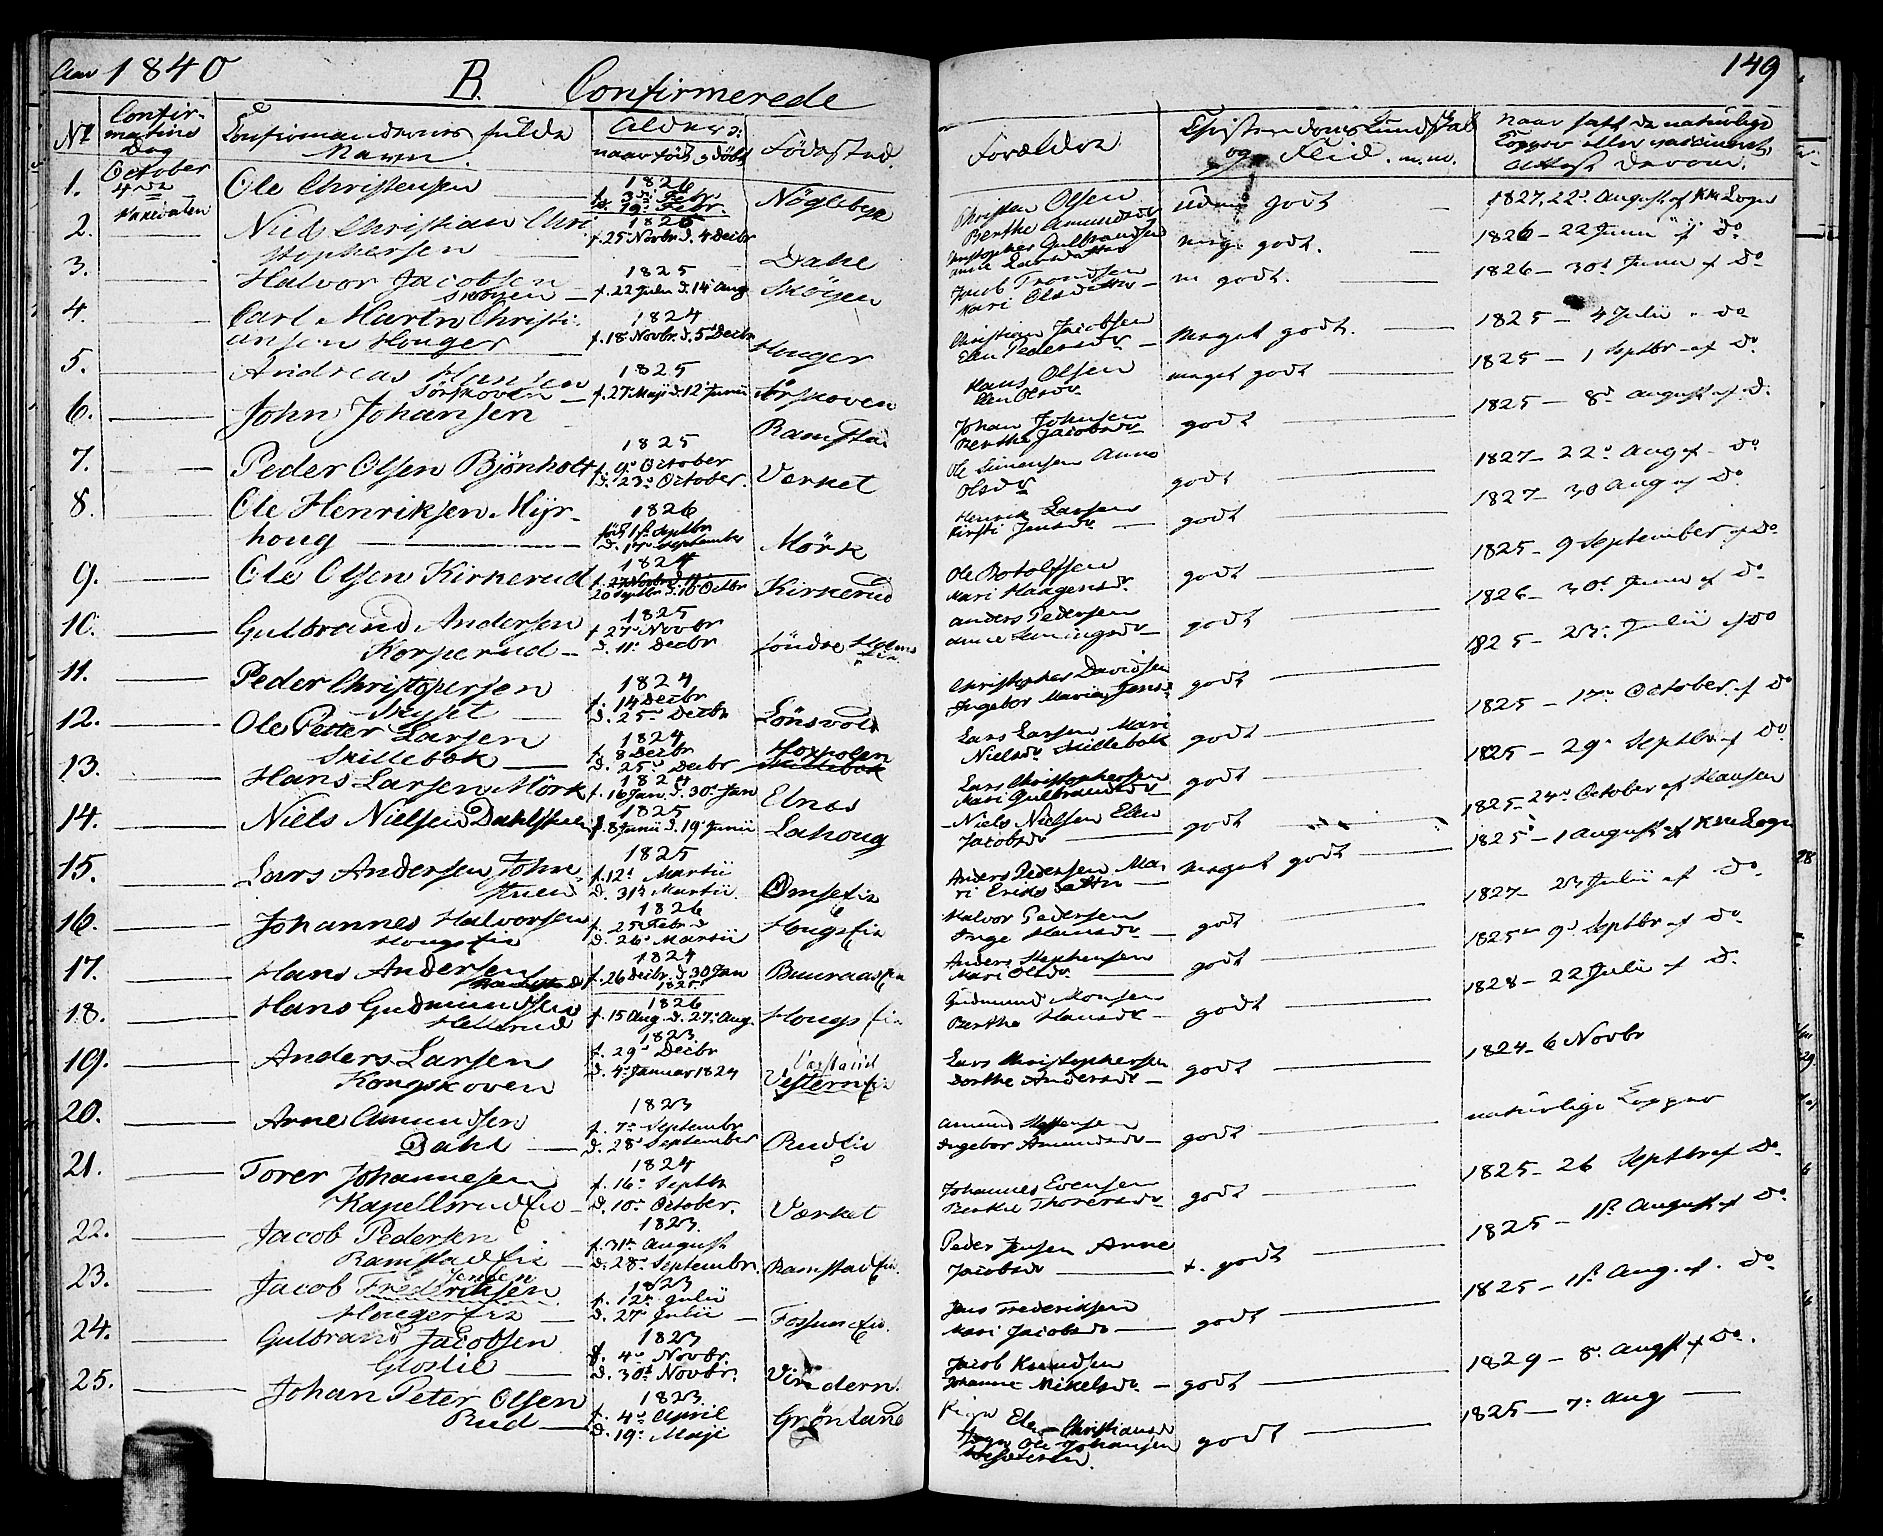 Aar 1840 B. Confirmerede 149
No Confirmations Dag Confirmandernes fulde Navn. Alder: naar föd og döbt Födested. Forældre Christendoms Kundskab og Flid. m.m. naar havt de naturlige Kopper eller vaccineret, Attest derom.
1. October 4de Ole Christensen 1826 f. 3die Febr. d. 19de Febr. Nöglebye Christen Olsen Berthe Amundsdr godt 1827, 22de August af
2. Niels Christian Christophersen 1825 f. 25 Novbr d. 4 Decbr Dahle Christopher Gulbrandsen Anne Larsdatter meget godt. 1826 – 22 Junii af Do
3. Halvor Jacobsen Sköyen 1825 f. 22 Julii d. 14 Aug Sköyen Jacob Trondsen Mari Olsdatter m godt. 1826 – 30te Junii af Do
4. Carl Martin Christiansen Houger 1824 f. 18 Novbr d. 5 Decbr Houger Christian Jacobsen Elen Pedersdr meget godt. 1825 – 4 Julii – Do
5. Andreas Hansen Sörskoven 1825 f. 27 Maji d. 12 Junii Hans Olsen Elen Olsdr meget godt 1825 – 1 Septbr af Do
6. John Johansen Ramstad Johan Johnsen Berthe Jacobsdr godt 1825 – 8de August af D.
7. Peder Olsen Björnholt 1825 f. 9de October d. 23de October. Verket Ole Simensen Anne Olsdr godt 1827 – 22de Aug af Do
8. Ole Henriksen Myrhoug 1826 föd 1ste Septbr d. 17de September Mörk Henrik Larsen Kirsti Jensdr godt 1827 – 30 Aug af Do
9. Ole Olsen Kirkerud 1824 20 Septbr d. 10 Octbr Kirkerud Ole Botolfsen Mari Haagensdr godt 1825 – 9 September af Do
10. Gulbrand Andersen Korperud 1825 f. 27 Novbr d. 11te Decbr Söndre Anders Pedersen Anne godt 1826 – 30te Junii af Do
11. Peder Christopersen 1824 f. 14 Decbr d. 25de Decbr Christopher Davidsen Ingebor Marie Jensdr godt 1825 – 23de Julii af Do
12. Ole Peter Larsen Skillebæk 1824 f. 8 Decbr d. 25de Decbr Skillebæk Lars Larsen Mari Nielsdr Skillebæk godt 1825 – 17de October af Do
13. Hans Larsen Mörk 1824 f. 16 Jan d. 30te Jan Elnes Lars Christophersen Mari Gulbrandsdr godt 1825 – 29de Septbr af Do
14. Niels Nielsen 1825 f. 8 Junii d. 19de Junii Lahoug Niels Nielsen Elen Jacobsdr godt 1825 – 24de October af Hansen
15. Lars Andersen 1825 f. 12te Martii d. 31te Martii Anders Pedersen Mari Ericsdatter meget godt 1825 – 1 August af
16. Johannes Halvorsen Hougseie 1826 f. 25 Febr. d. 26de Martii Hougseie Halvor Pedersen Inge Hansdr godt 1827 – 23 Julii af Do
17. Hans Andersen 1824 f. 26 Decbr. d 30 Jan 1825 Anders Stephensen Mari Olsdr godt 1825 – 9de Septbr af Do
18. Hans Gudmundsen 1826 f. 15 Aug. d. 27de Aug. Hougseie Gudmund Monsen Berthe Hansdr godt 1828 – 22 Julii af D.
19. Anders Larsen Kongskoven 1823. f. 29de Decbr d. 4de Januar 1824 Vesterneie Lars Christophersen Dorthe Andersdr godt 1824 – 6 Novbr
20. Arne Amundsen Dahl 1823 f. 7de Septembr d. 28de September Rudeie Amund Steffensen Ingebor Amundsdr godt naturlige Kopper
21. Torer Johannesen Kapellsrudeie 1824 f. 16de Septbr d. 10de October. Værket Johannes Evensen Berthe Thorersdr godt 1825 – 26 Septbr af Do
22. Jacob Pedersen Ramstadeie 1823. f. 31te August d. 28de Septembr. Ramstadeie. Peder Jensen Anne Jacobsdr t. godt 1825 – 1ste August af Do
23. Jacob Frederiksen Jensen Hougereie 1823 f. 12te Julii d. 27de Julii Fossumeie. Jens Frederiksen Mari Jacobsdr godt 1825 – 1ste Aug. af. Do
24. Gulbrand Jacobsen Gloslie 1823 f. 4de Novbr. d. 30te Novbr. Vindern. Jacob Knudsen Johanne Mikelsdr godt 1829 – 8de Augst af Do.
25. Johan Peter Olsen Rud 1823. f. 4de April d. 19de Maji Grönland Christiansdr Ole Johansen godt 1825 – 7de Aug